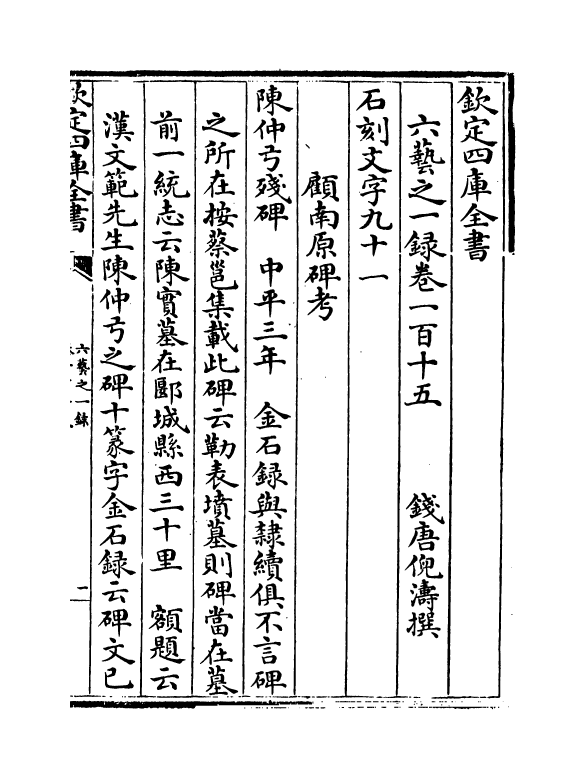 欽定四庫全書
六藝之一録卷一百十五
錢唐倪濤撰
石刻文字九十一
顧南原碑考
陳仲弓殘碑　中平三年　金石録與隸續俱不言碑
之所在按蔡邕集載此碑云勒表墳墓則碑當在墓
前一統志云陳實墓在郾城縣西三十里　額題云
漢文範先生陳仲弓之碑十篆字金石録云碑文已
欽定四庫全書
六藝之一録
一